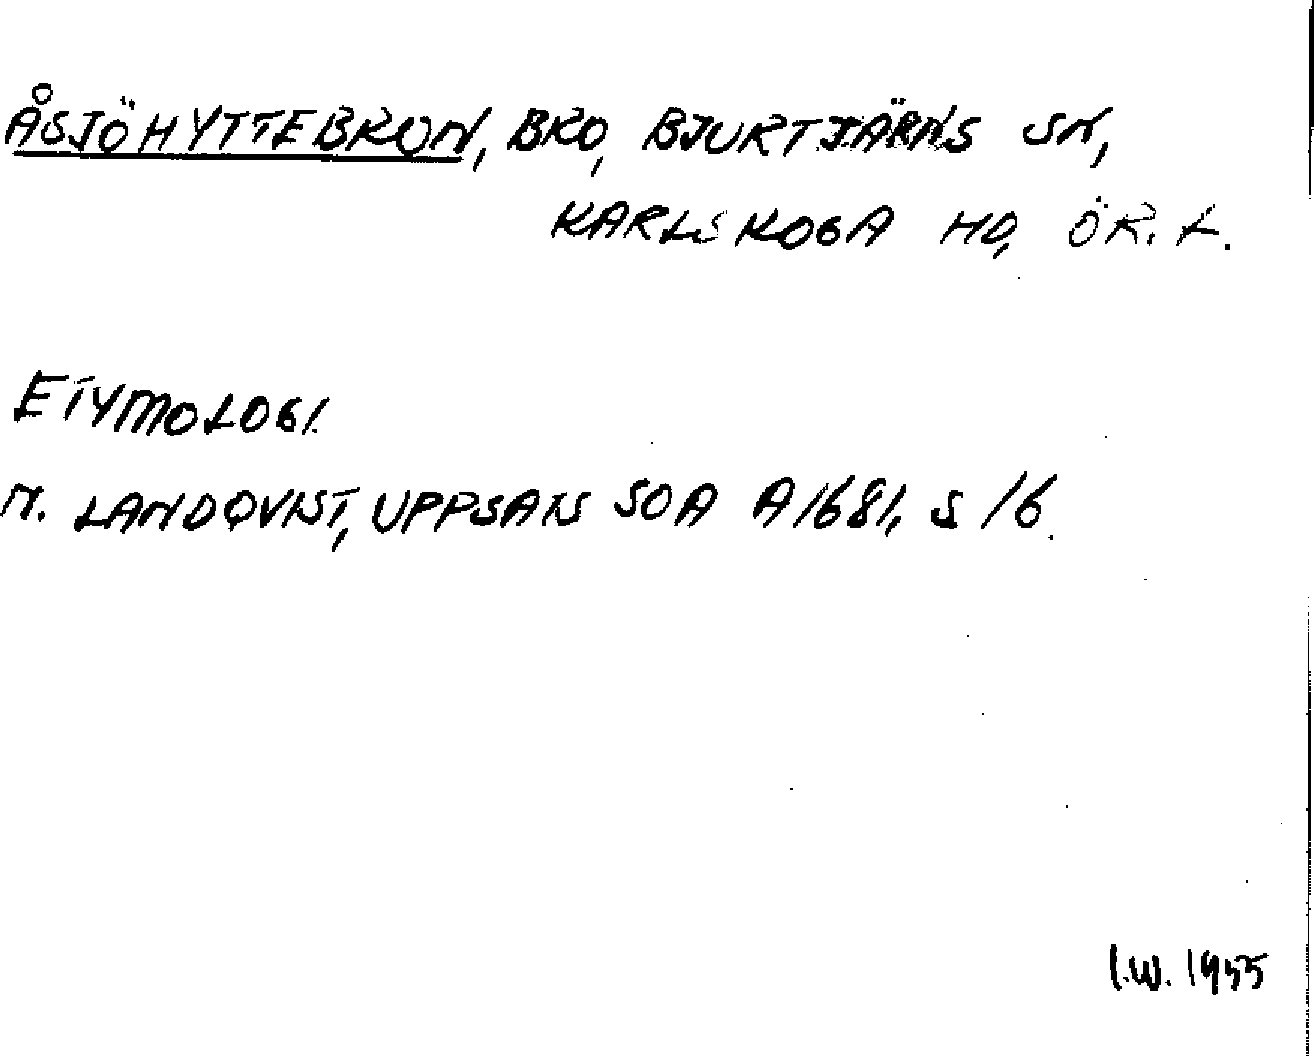 ÅSJÖHYTTEBRON, BRO, BJURTJÄRNS SN,
KARLSKOGA HD, ÖR. L.
ETYMOLOGI.
N. LANDQVIST, UPPSATS SOA A1681, S 16.
I.W. 1955